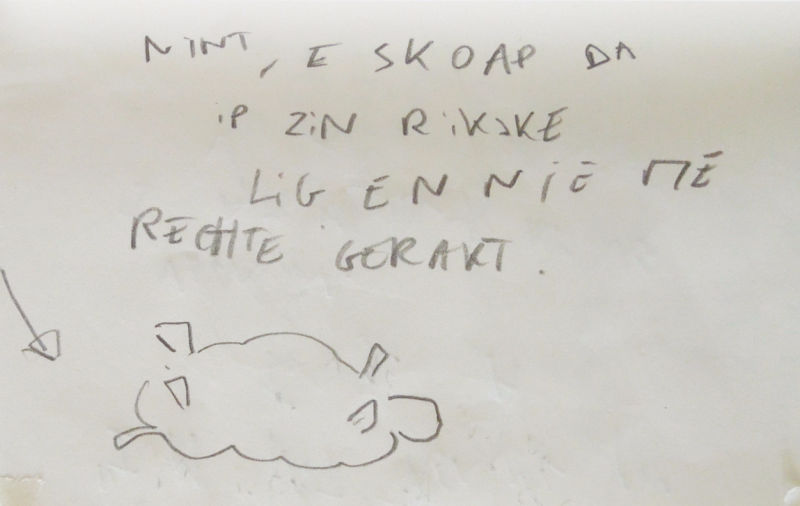 NINT, E SKOAP DA
IP ZIN RIKSKE
LIG EN NIE ME
RECHTE GERAKT.